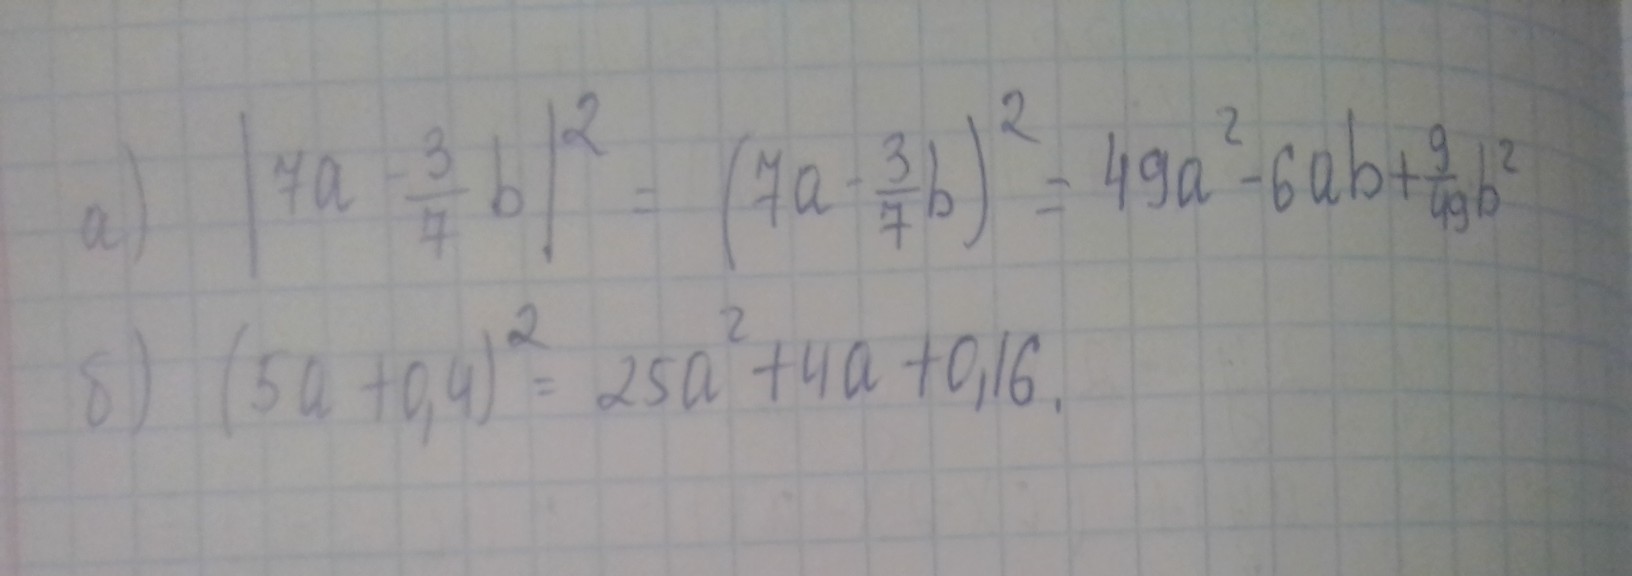 а) |7a - 3/7 b|² = (7a - 3/7 b)² = 49a² - 6ab + 9/49 b²
б) (5a + 0,4)² = 25a² + 4a + 0,16.